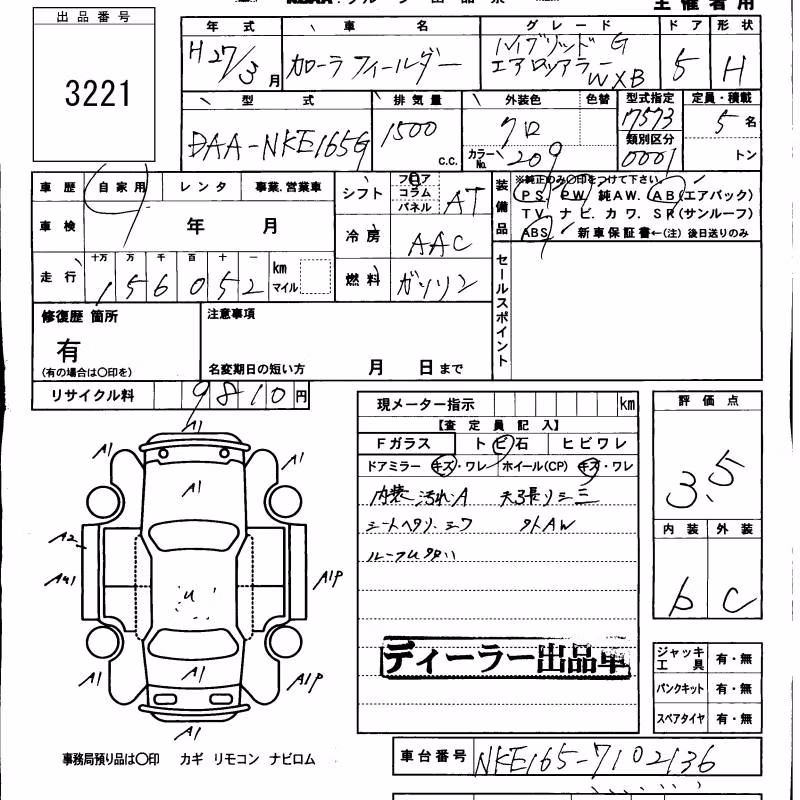 主催者用
出品番号
3221
年式 車名 グレード ドア 形状
H27/3月 カローラフィールダー ハイブリッド G エアロツアラー WXB 5 H
型式 排気量 外装色 色替 型式指定 定員・積載
DAA-NKE165G 1500 c.c. クロ 17573 5名
カラーNo. 209 類別区分 0001 トン
車歴 自家用 レンタ 事業.営業車
シフト フロア コラム パネル AT
装備品 ※純正のみ〇印をつけて下さい。
PS PW 純AW. AB(エアバック)
TV. ナビ. カワ. SR(サンルーフ)
ABS 新車保証書←(注)後日送りのみ
車検 年 月
冷房 AAC
走行 十万 万 千 百 十 一
156052 km マイル
燃料 ガソリン
セールスポイント
修復歴 箇所
有
(有の場合は〇印を)
注意事項
名変期日の短い方 月 日まで
リサイクル料 9810円
現メーター指示 km
【査定員記入】
Fガラス トビ石 ヒビワレ
ドアミラー キズ・ワレ ホイール(CP) キズ・ワレ
内装汚れA 天張りシミ
シートヘタリ.シワ 外AW
評価点
3.5
内装 外装
b C
A1
A1 A1
A1
A2
AU1
U
A1P
A1 A1 A1P
A1
ディーラー出品車
ジャッキ工具 有・無
パンクキット 有・無
スペアタイヤ 有・無
事務局預り品は〇印 カギ リモコン ナビロム
車台番号 NKE165-7102136